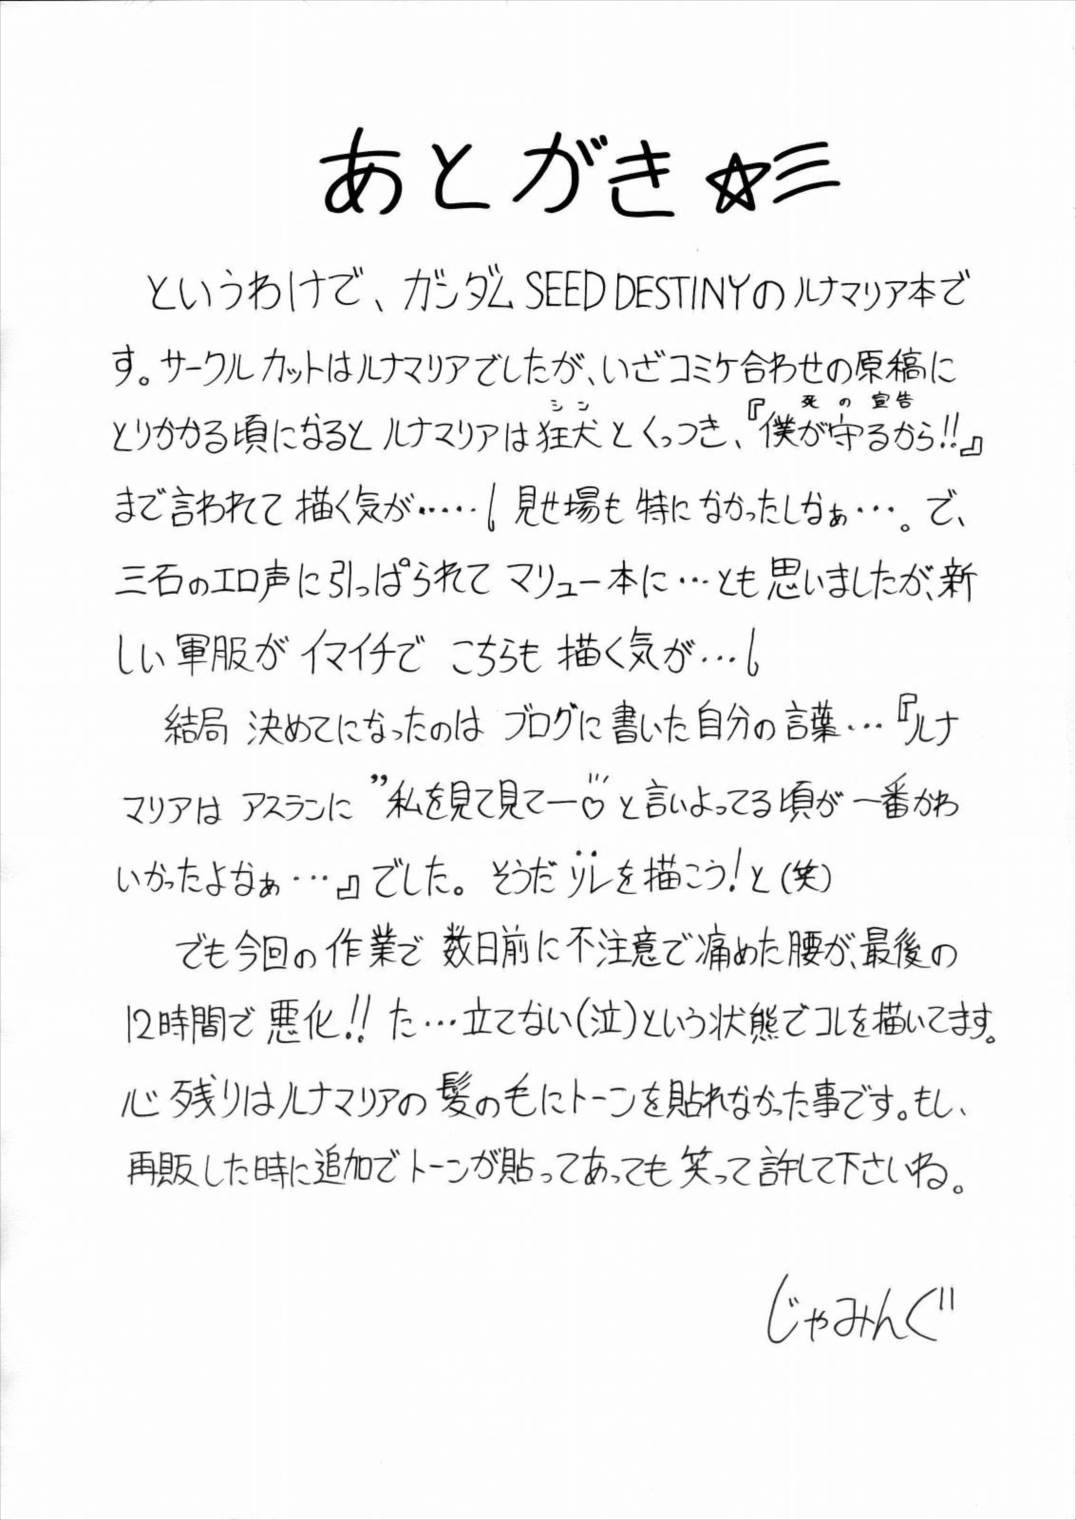 あとがき☆彡
というわけで、ガンダムSEED DESTINYのルナマリア本で
す。サークルカットはルナマリアでしたが、いざコミケ合わせの原稿に
シン 死の宣告
とりかかる頃になるとルナマリアは狂犬とくっつき、『僕が守るから!!』
まで言われて描く気が……見せ場も特になかったしなぁ…。で、
三石のエロ声に引っぱられてマリュー本に…とも思いましたが、新
しい軍服がイマイチでこちらも描く気が…
結局決めてになったのはブログに書いた自分の言葉…『ルナ
マリアはアスランに”私を見て見てー♡と言いよってる頃が一番かわ
いかったよなぁ…』でした。そうだソレを描こう!と(笑)
でも今回の作業で数日前に不注意で痛めた腰が、最後の
12時間で悪化!!た…立てない(泣)という状態でコレを描いてます。
心残りはルナマリアの髪の毛にトーンを貼れなかった事です。もし、
再販した時に追加でトーンが貼ってあっても笑って許して下さいね。
じゃみんぐ